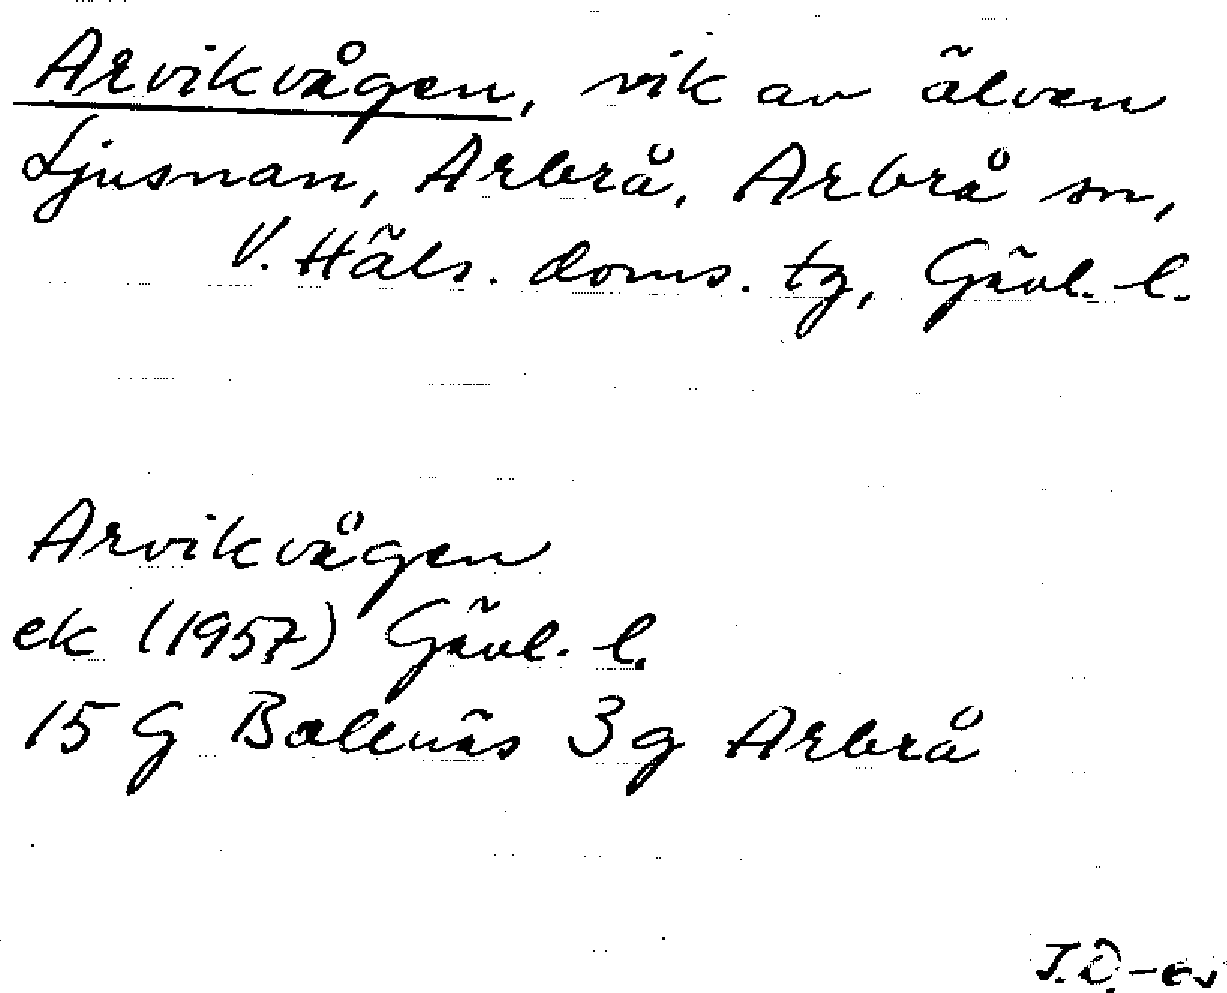 Arvikvågen, vik av älven
Ljusnan, Arbrå, Arbrå sn,
V. Häls. doms. tg, Gävl. l.
Arvikvågen
ek (1957) Gävl. l.
15 G Bollnäs 3g Arbrå